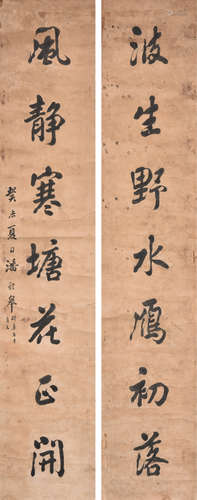 波生野水鴈初落
風靜寒塘花正開
癸亥夏日潘齡皋